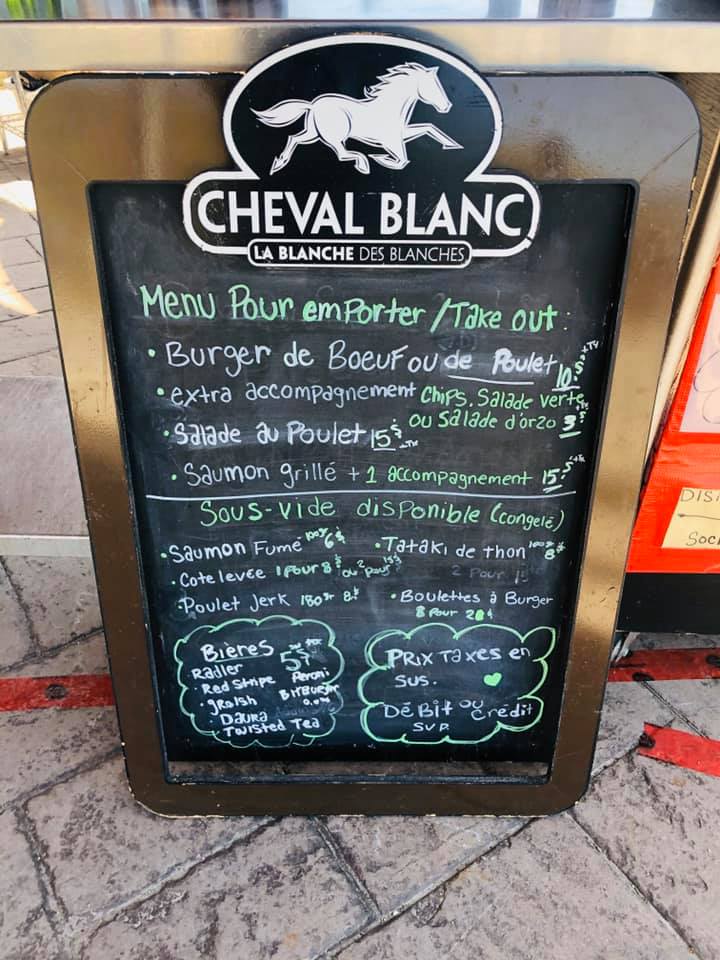 CHEVAL BLANC
LA BLANCHE DES BLANCHES
Menu Pour emporter / Take out:
• Burger de Boeuf ou de Poulet 10.$
• extra accompagnement Chips. Salade verte
ou Salade d'orzo 3$
• Salade au Poulet 15$
• Saumon grillé + 1 accompagnement 15.$
Sous-vide disponible (congelé)
• Saumon Fumé 100gr 6$
• Tataki de thon 8$
• Cote levée 1 pour 8$ ou 2 pour 15$
2 Pour
• Poulet Jerk 180gr 8$
• Boulettes à Burger
8 Pour 20$
Bières 5$
Radler
Peroni
Red Stripe
Bitburger
grolsh
0.0%
Daura
Twisted Tea
Prix Taxes en
sus.
Débit ou crédit
SVP.
DIS
Soc